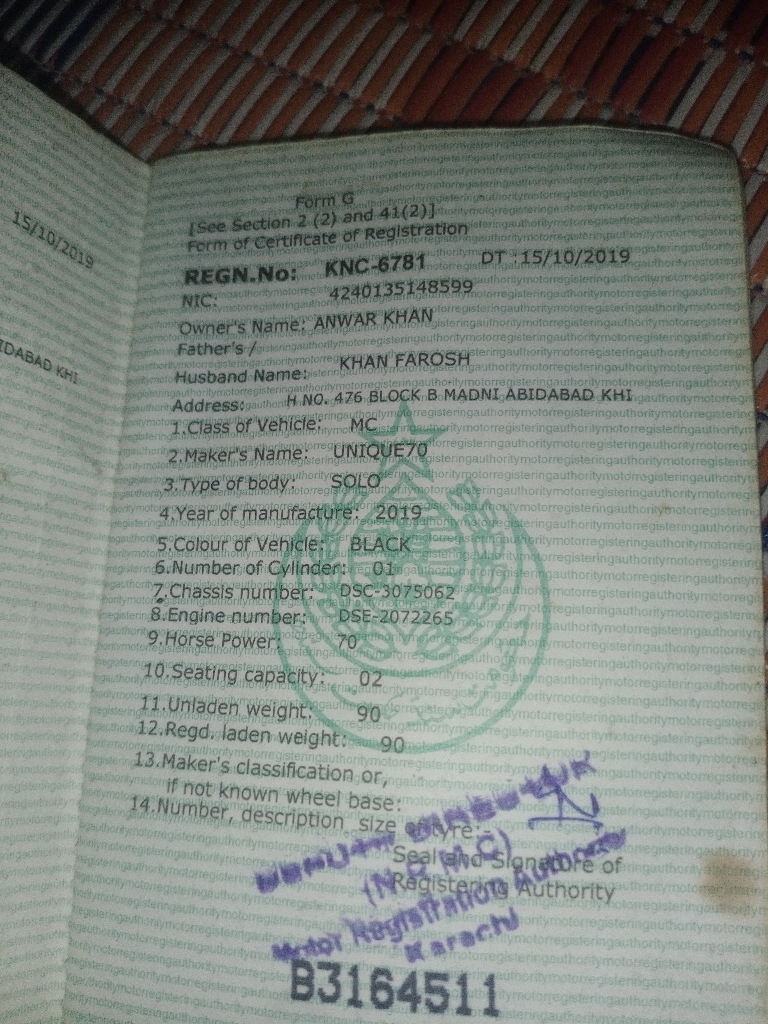 15/10/2019
IDABAD KHI
Form G
[See Section 2 (2) and 41(2)]
Form of Certificate of Registration
REGN.No: KNC-6781 DT :15/10/2019
NIC: 4240135148599
Owner's Name: ANWAR KHAN
Father's /
Husband Name: KHAN FAROSH
Address: H NO. 476 BLOCK B MADNI ABIDABAD KHI
1.Class of Vehicle: MC
2.Maker's Name: UNIQUE70
3.Type of body: SOLO
4.Year of manufacture: 2019
5.Colour of Vehicle: BLACK
6.Number of Cylinder: 01
7.Chassis number: DSC-3075062
8.Engine number: DSE-2072265
9.Horse Power: 70
10.Seating capacity: 02
11.Unladen weight: 90
12.Regd. laden weight: 90
13.Maker's classification or,
if not known wheel base:
14.Number, description size of tyre:-
Seal and Signature of
Registering Authority
Motor Registration Authority
Karachi
B3164511